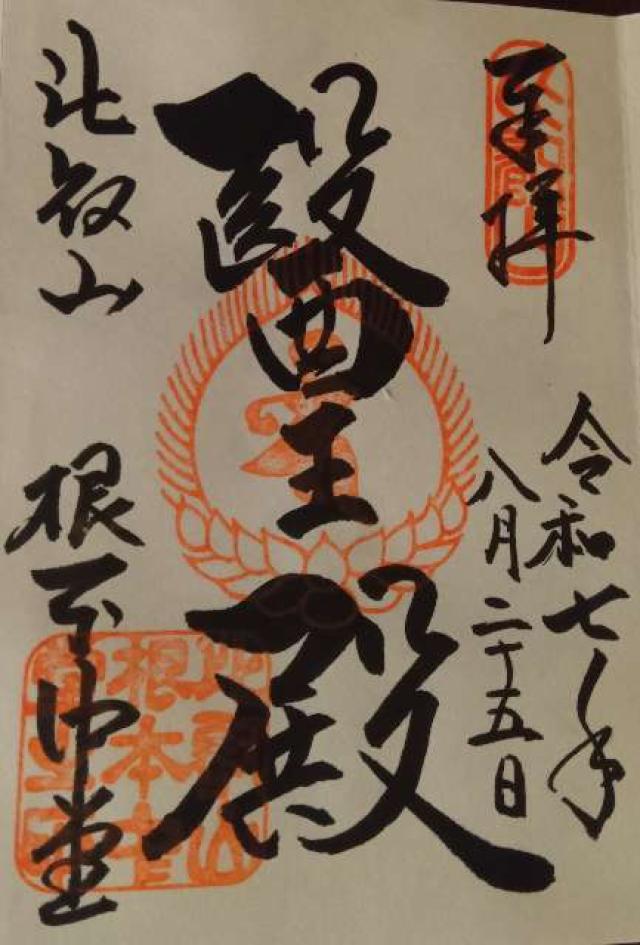 奉拝
令和七年
八月二十五日
醫王殿
比叡山
根本中堂